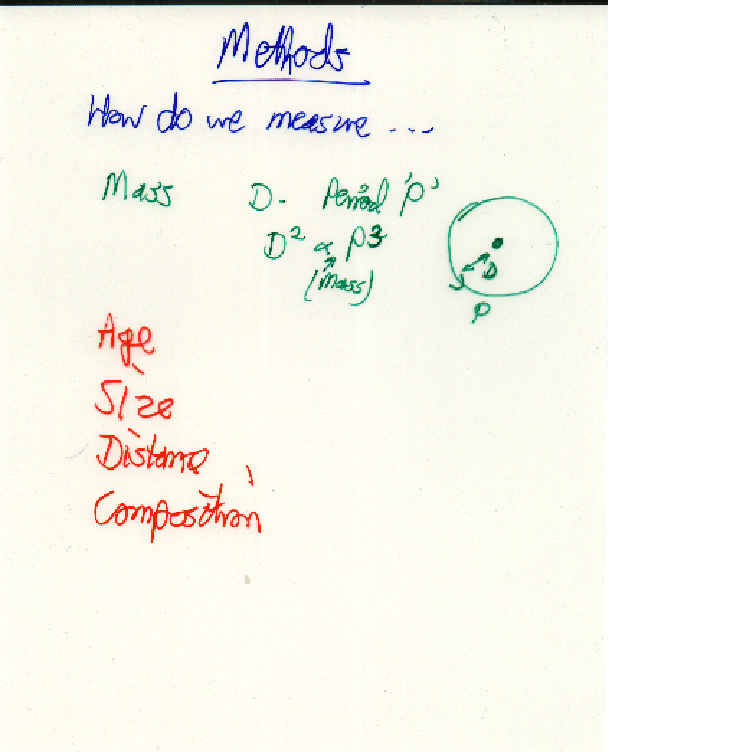 Methods
How do we measure ...
Mass D - Period 'P'
D² ∝ P³
(mass)
D
P
Age
Size
Distance
Composition